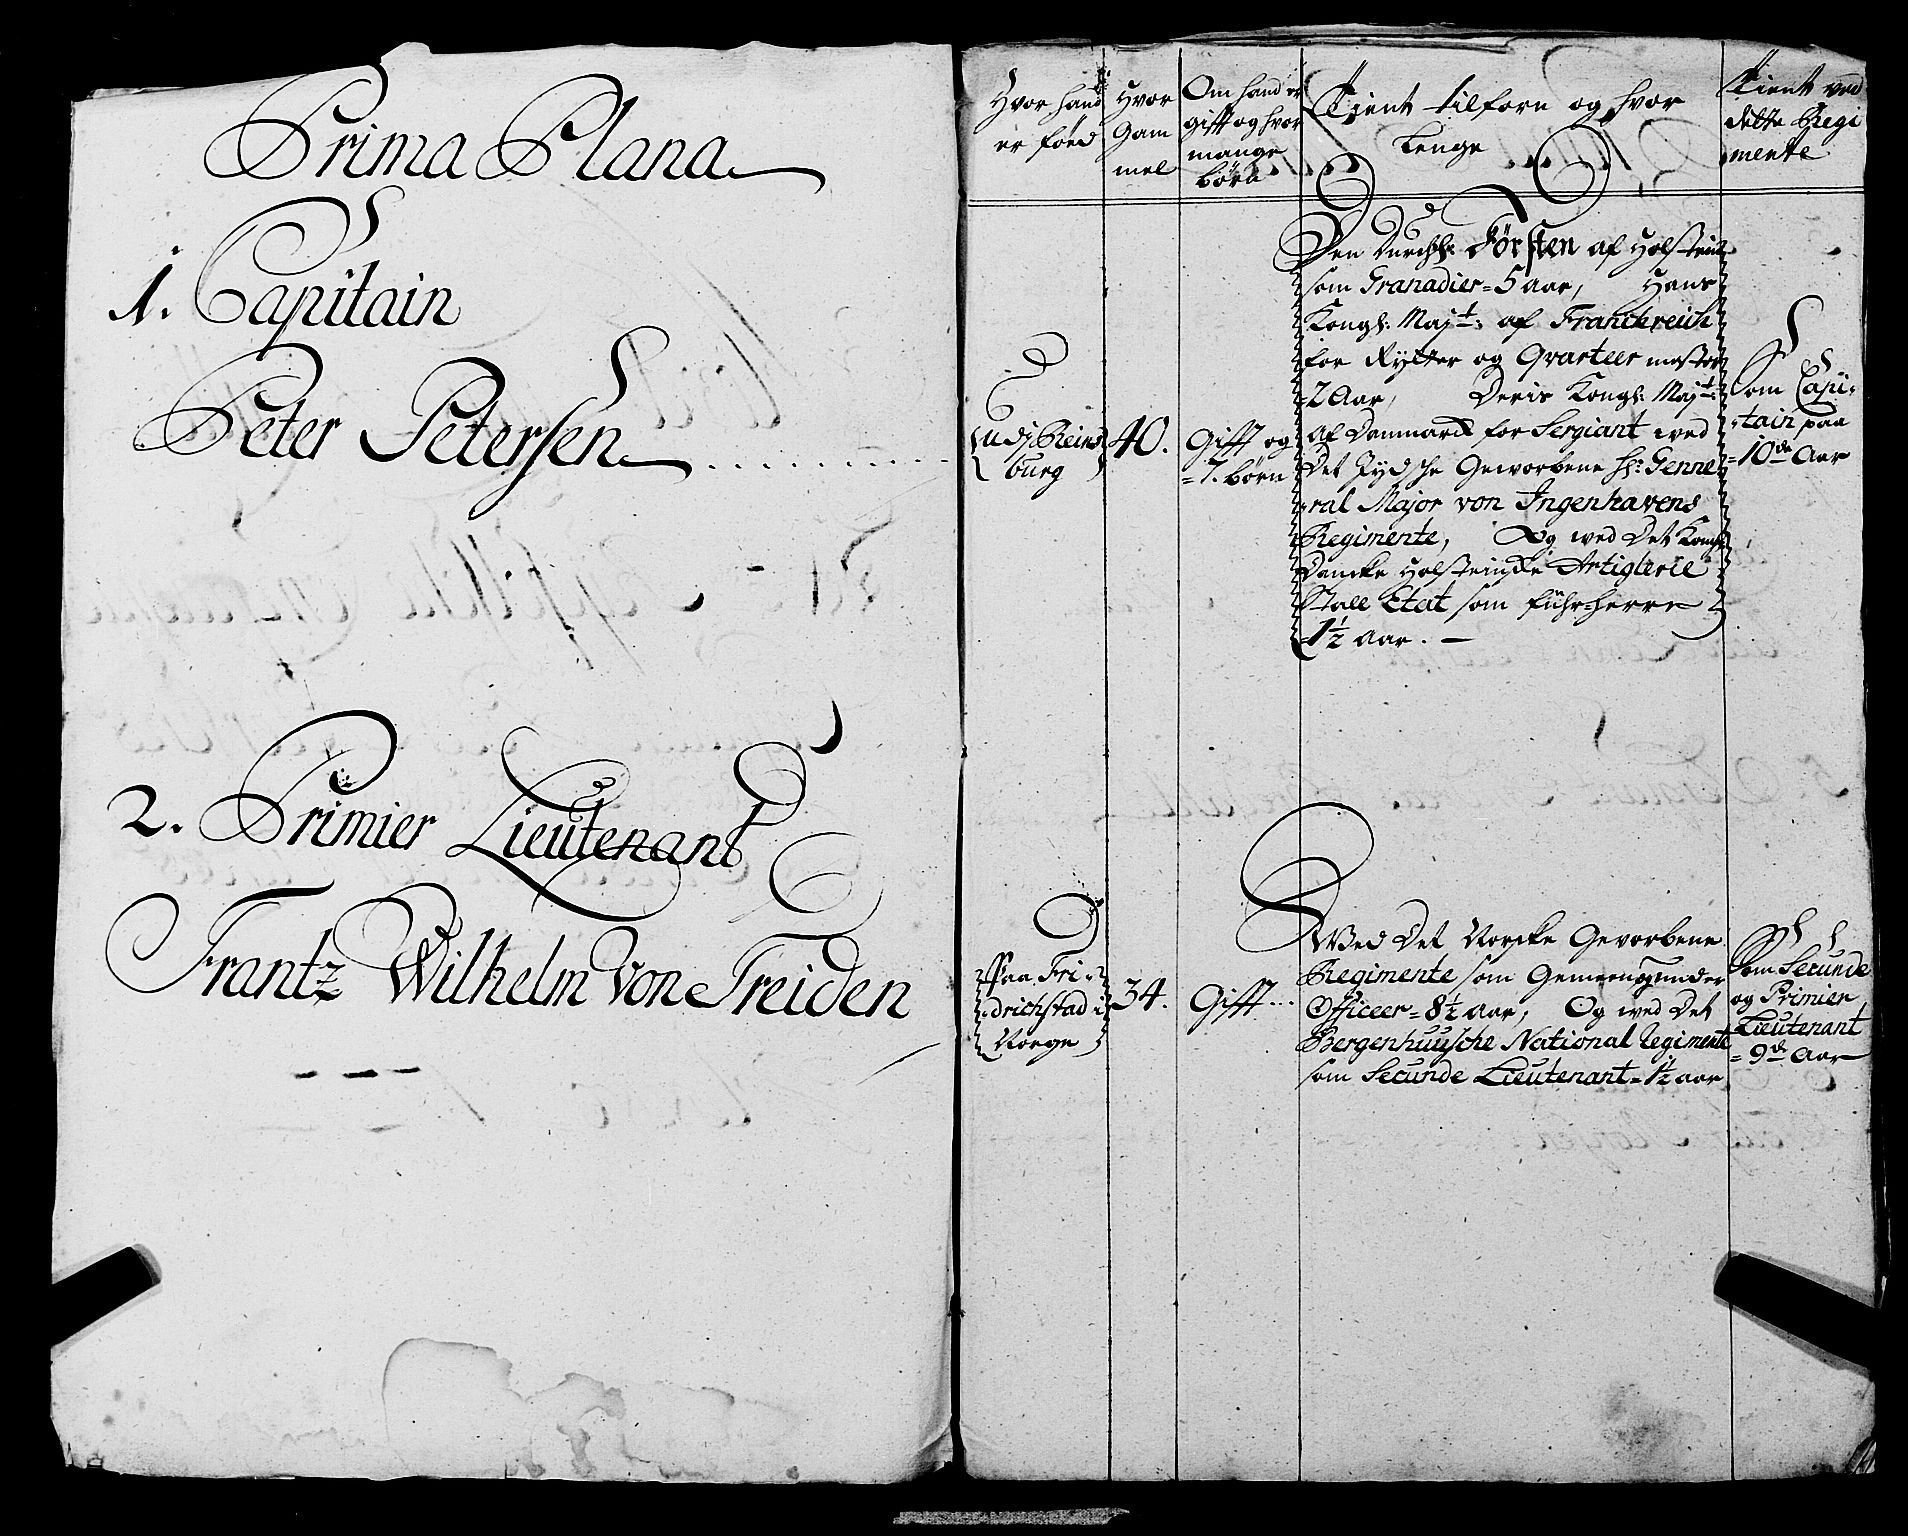 Prima Plana
1. Capitain
Peter Petersen
2. Primier Lieutenant
Frantz Wilhelm Von Treiden
Hvor hand
er föed
Hvor
Gam
mel
Om hand er
gift og hvor
mange
börn
Tient tilforn og hvor
Lenge
Tient ved
dette Regi
mente
Udj Reins
burg
40.
Gifft og
= 7. börn
Den Durchl: Förften af Holsteen
som Granadier = 5 aar, Hans
Kongl: Majt: af Franckreich
for Rytter og Qvarteer mester
2 Aar, Deris Kongl: Majt:
af Danmarck for Sergiant wed
Det Jydsche Geworbene H: Genne
ral Major von Ingenhavens
Regimente, Og wed Det Kongl:
Dancke Holsteinske Artiglerie
Stall Etat som führ=herre
1½ Aar.
Som Capi-
tain paa
= 10de Aar
Paa Fri-
drichstad i
Norge
34.
Gifft
Wed Det Norcke Gevorbene
Regimente som Gemeen og under
Officeer = 8½ Aar, Og wed Det
Bergenhuusche National Regimente
som Secunde Lieutenant = 1½ aar
Som Secunde
og Primier
Lieutenant
= 9de Aar